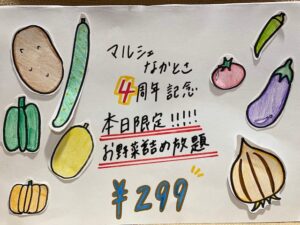 マルシェ
なかとさ
4周年記念
本日限定!!!!!
お野菜詰め放題
¥299